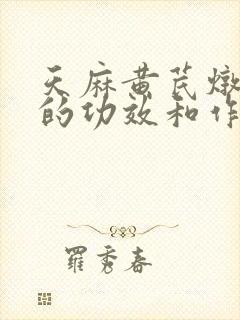 天麻黄芪炖
的功效和作
羅秀春